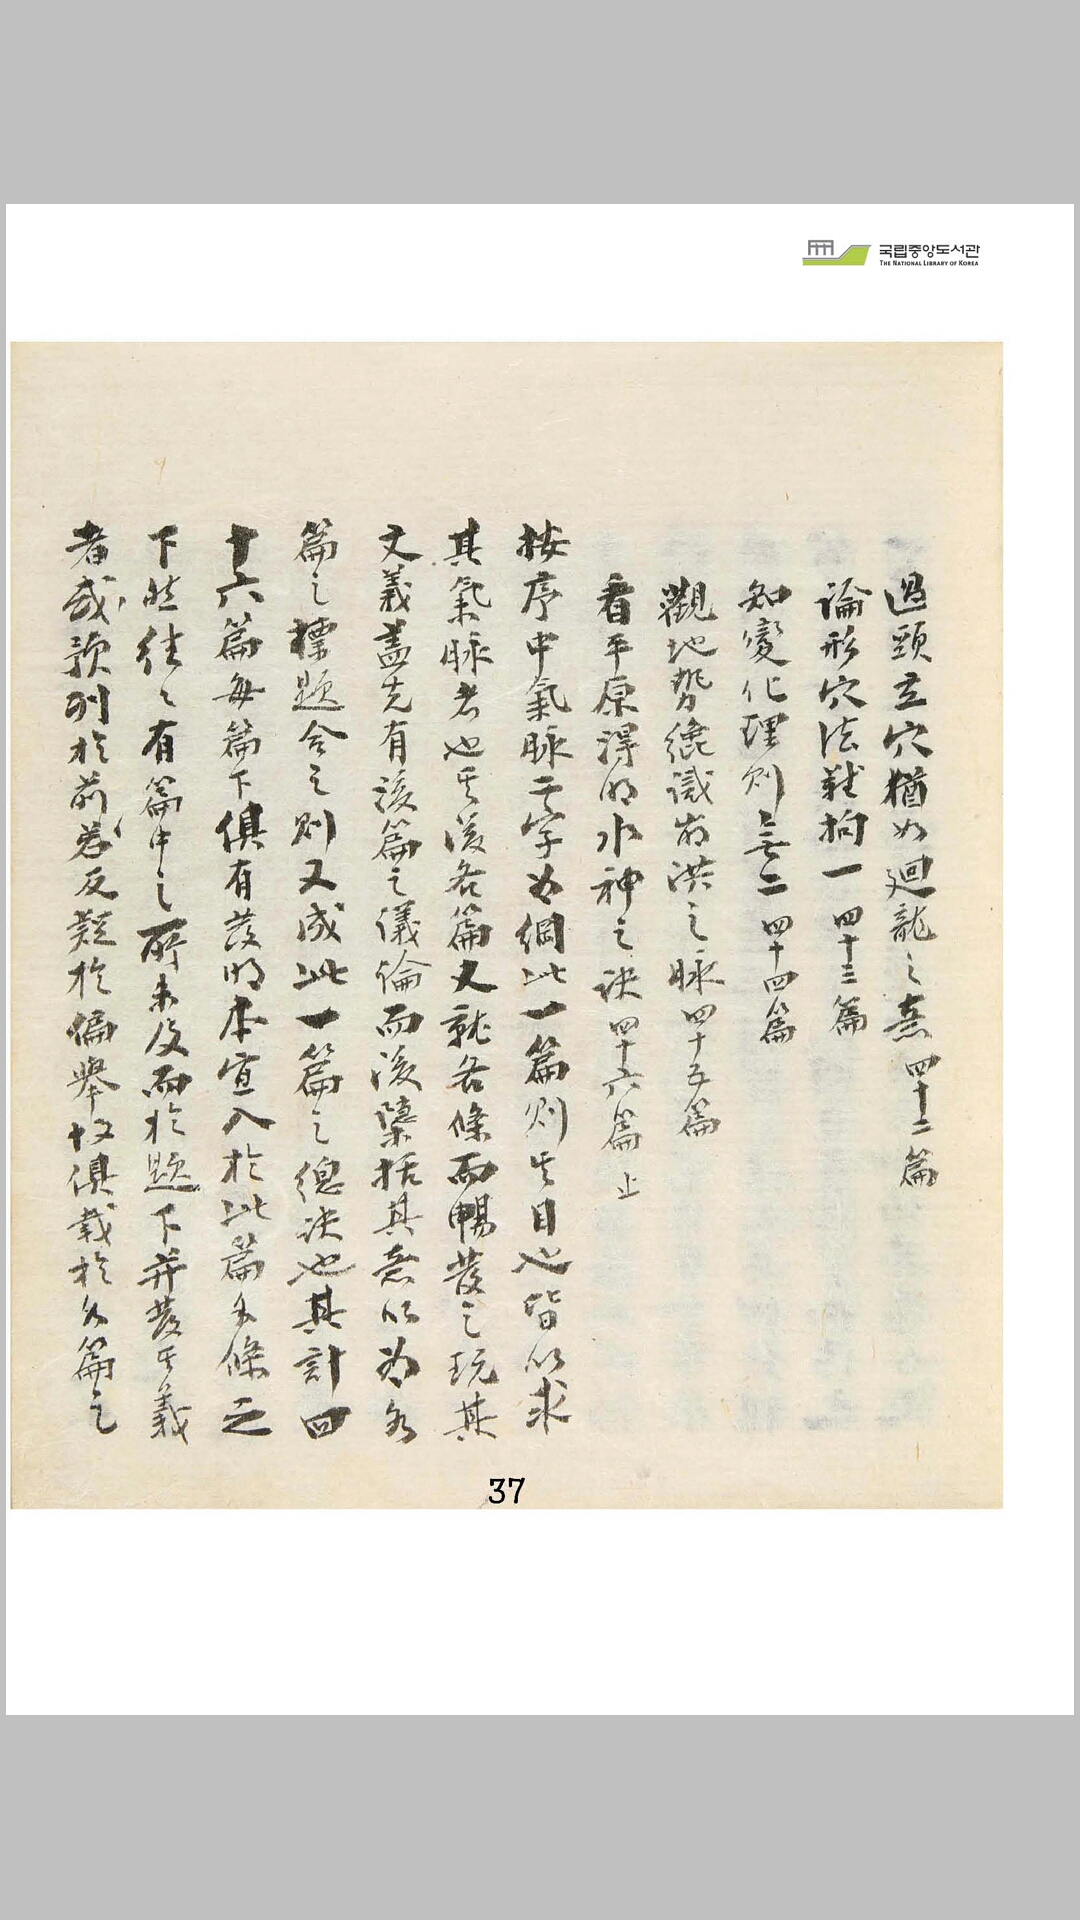 국립중앙도서관
THE NATIONAL LIBRARY OF KOREA
過頸立穴猶如廻龍之意四十二篇
論形穴法難拘一四十三篇
知變化理則無二四十四篇
觀地勢纔識崩洪之脉四十五篇
看平原得明水神之訣四十六篇止
按序中氣脉二字为綱此一篇則其目也皆以求
其氣脉者也其後各篇又就各條而暢發之玩其
文義盖先有後篇之議論而後檃括其意以为各
篇之標題合之則又成此一篇之總訣也其計四
十六篇每篇下俱有發明本宜入於此篇各條之
下然往々有篇中之所未及而於題下并發其義
者或欲列於前恐反疑於偏舉故俱載於各篇之
37